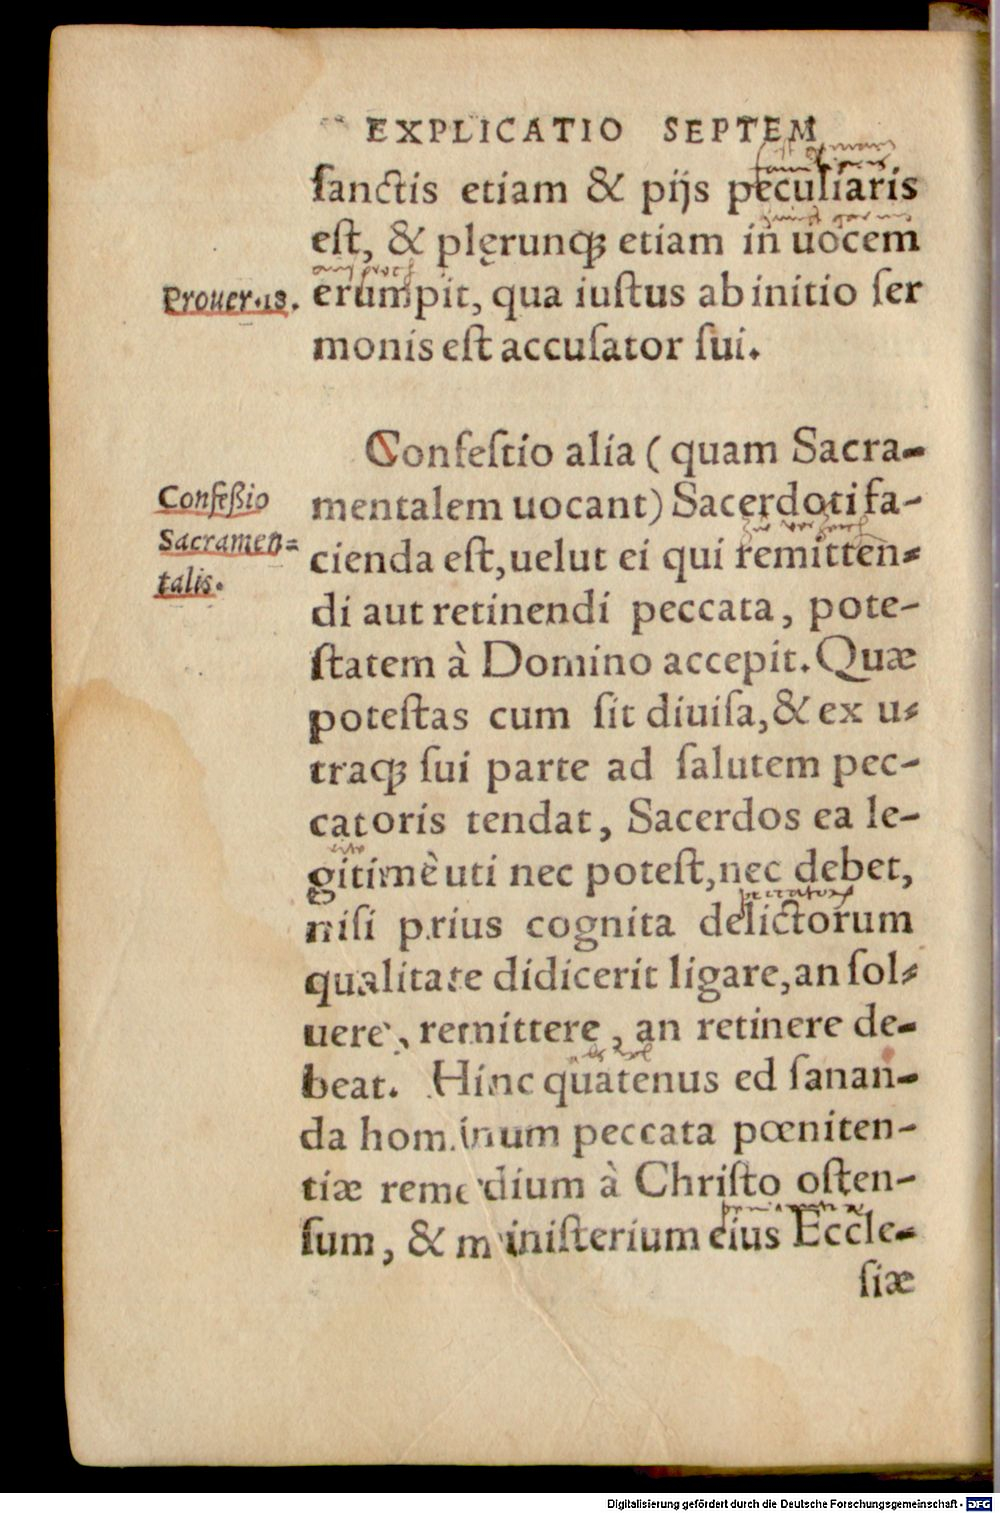 EXPLICATIO SEPTEM
ſanctis etiam & pijs peculiaris
eſt, & plęrunqꝫ etiam in uocem
Prouer.18.
erumpit, qua iuſtus ab initio ſer
monis eſt accuſator ſui.
Confeſtio alia (quam Sacra-
Confeßio
mentalem uocant) Sacerdoti fa-
Sacramen=
cienda eſt, uelut ei qui remitten-
talis.
di aut retinendi peccata, pote-
ſtatem à Domino accepit. Quæ
poteſtas cum ſit diuiſa, & ex u-
traqꝫ ſui parte ad ſalutem pec-
catoris tendat, Sacerdos ea le-
gitimè uti nec poteſt, nec debet,
niſi prius cognita delictorum
peccatorum
qualitate didicerit ligare, an ſol-
uere, remittere, an retinere de-
beat. Hinc quatenus ed ſanan-
da hominum peccata pœniten-
tiæ remedium à Chriſto oſten-
ſum, & miniſterium eius Eccle-
ſiæ
Digitalisierung gefördert durch die Deutsche Forschungsgemeinschaft - DFG